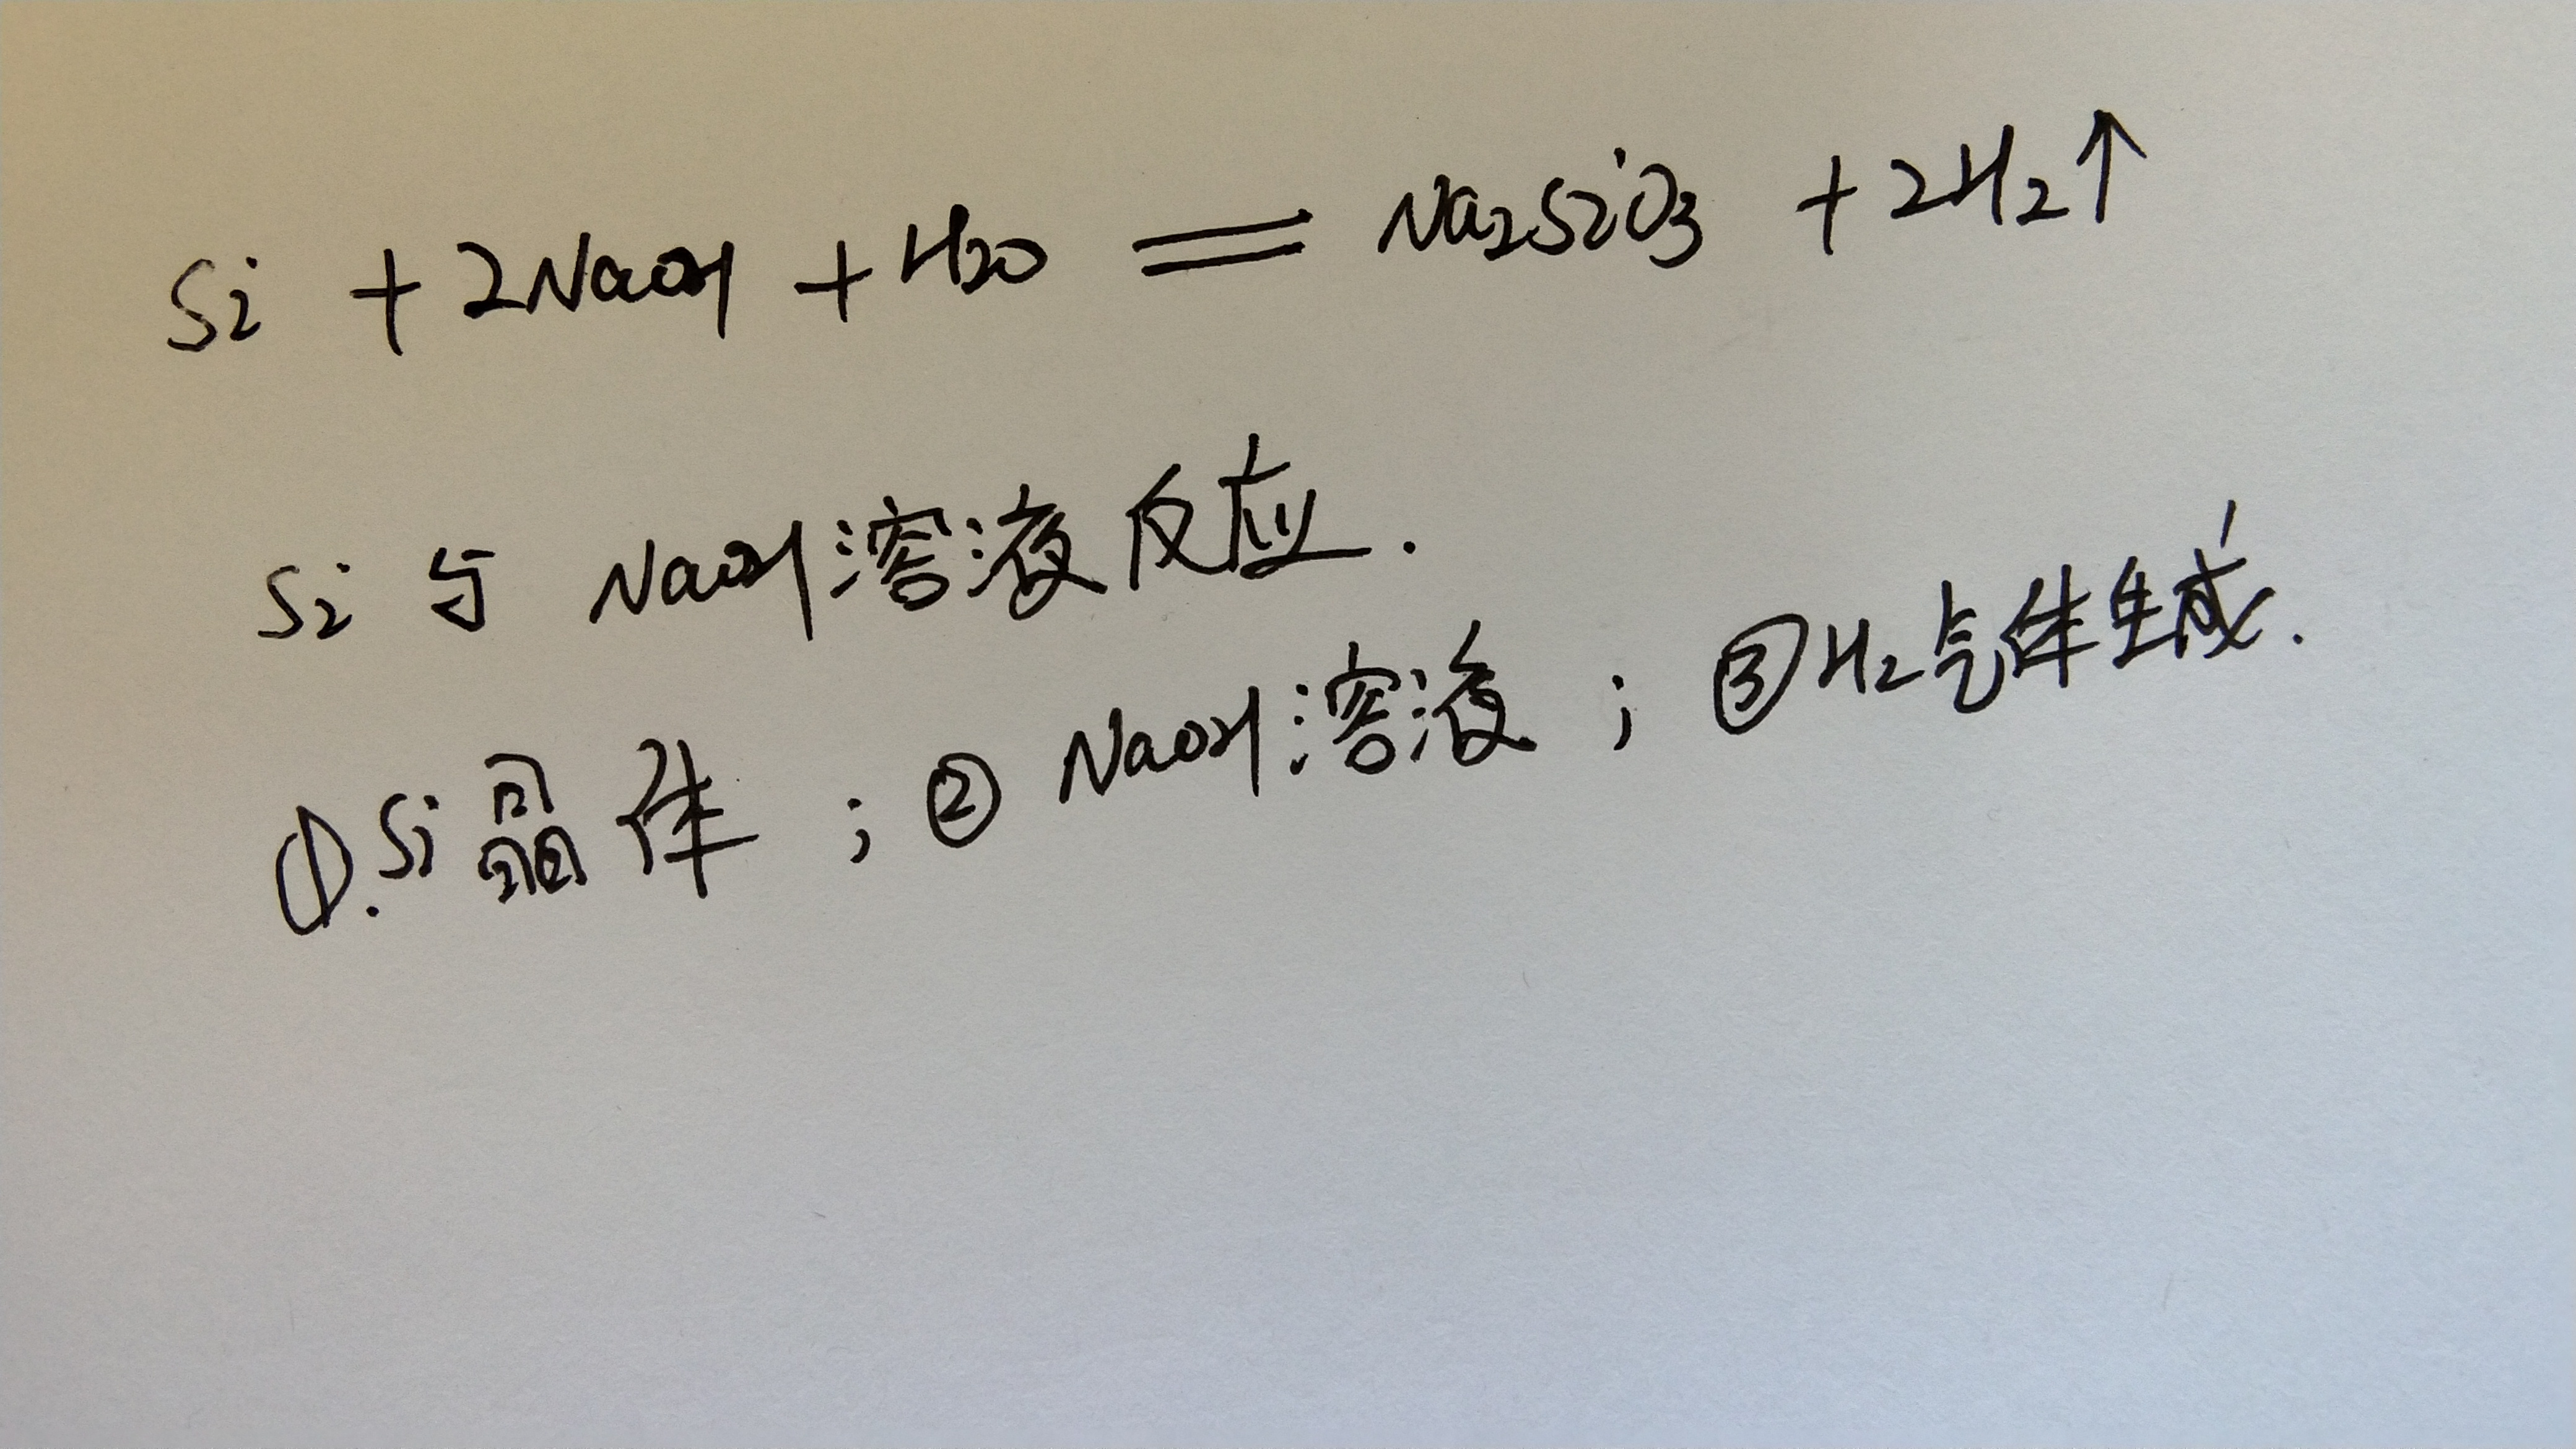 Si + 2NaOH + H2O = Na2SiO3 + 2H2↑
Si 与 NaOH溶液反应.
①.Si晶体 ; ② NaOH溶液 ; ③H2气体生成.